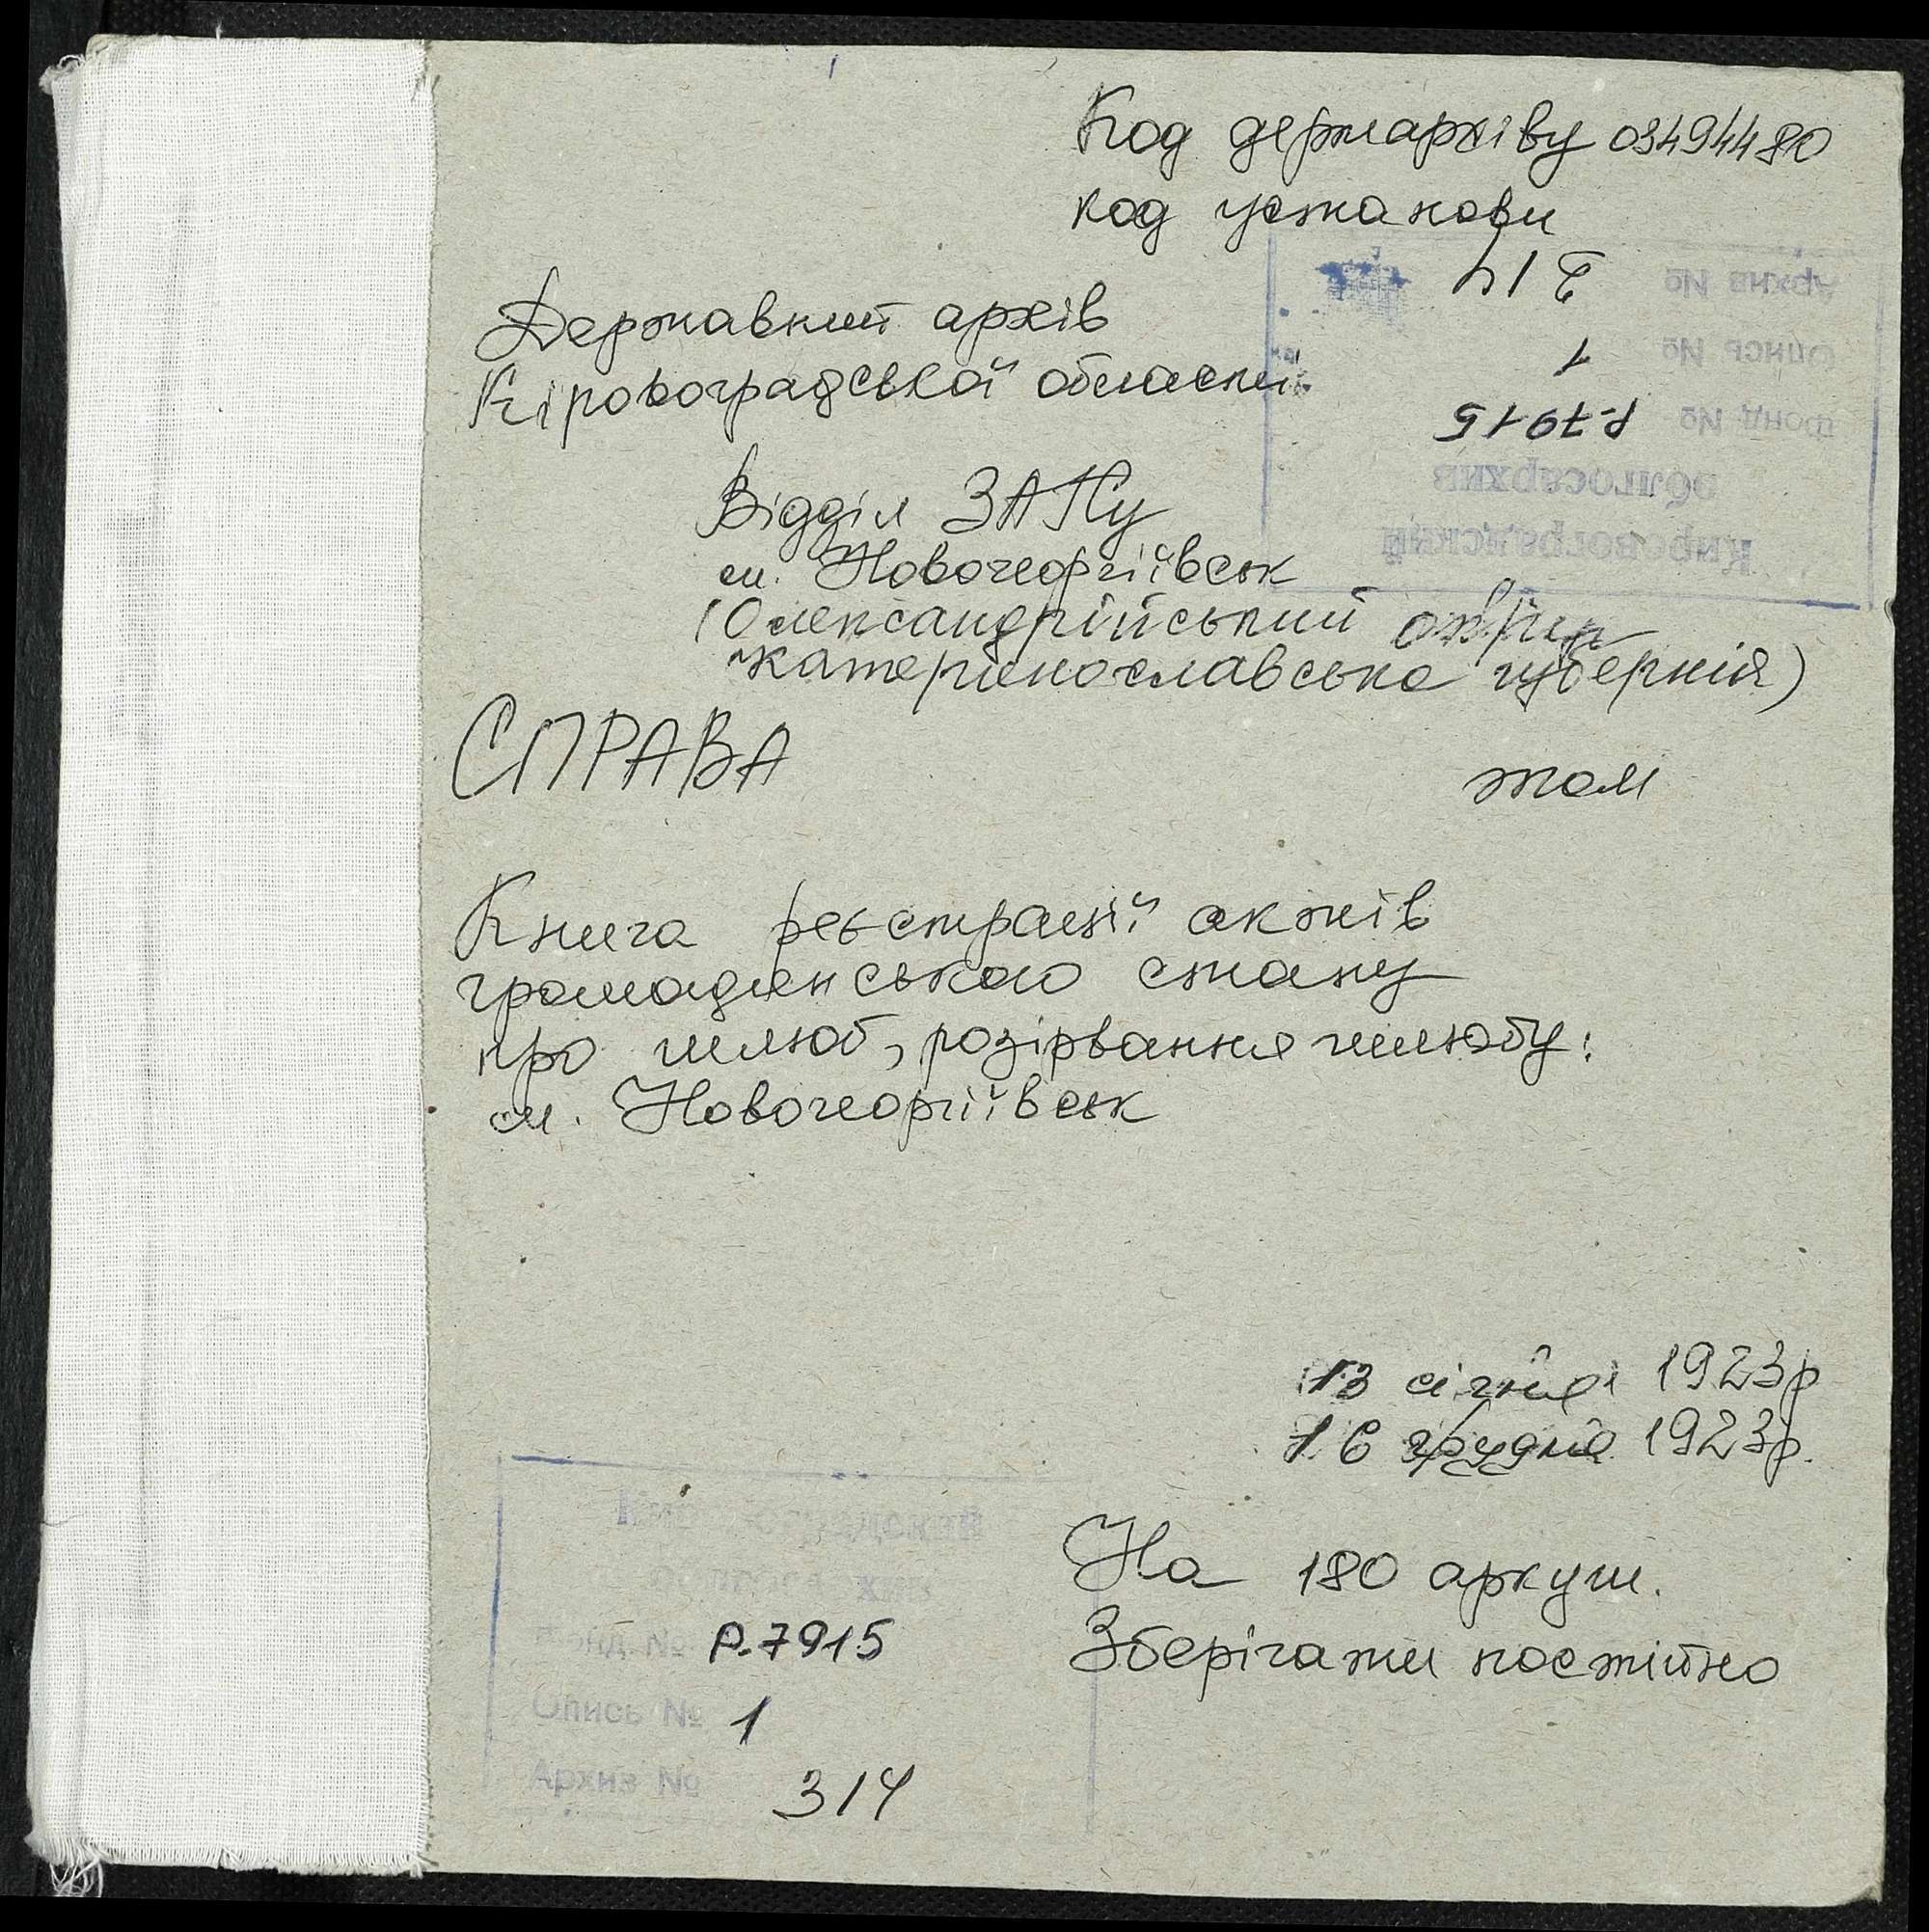 Код держархіву 03494480
код установи
Державний архів
Кіровоградської області
Кировоградский
облгосархив
Фонд № Р-7915
Опись № 1
Архив № 314
Відділ ЗАГСу
м. Новогеоргіївськ
(Олександрійський округ
Катеринославська губернія)
СПРАВА том
Книга реєстрації актів
громадянського стану
про шлюб, розірвання шлюбу:
м. Новогеоргіївськ
13 січня 1923р
16 грудня 1923р.
На 180 аркуш.
Зберігати постійно
Кировоградский
облгосархив
Фонд № Р-7915
Опись № 1
Архив № 314